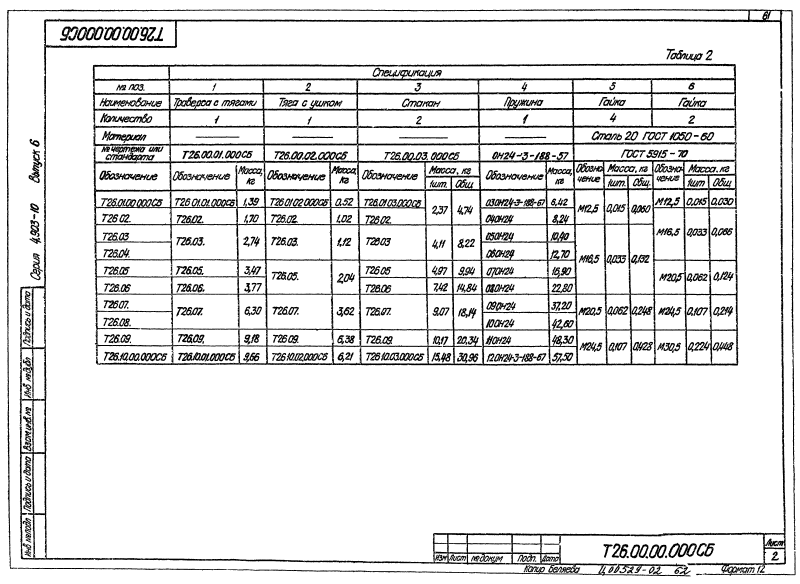 61
Т26.00.00.000СБ
Таблица 2
Серия 4.903-10 Выпуск 6
Спецификация
№ поз. 1 2 3 4 5 6
Наименование Траверса с тягами Тяга с ушком Стакан Пружина Гайка Гайка
Количество 1 1 2 1 4 2
Материал Сталь 20 ГОСТ 1050-60
№ чертежа или стандарта Т26.00.01.000СБ Т26.00.02.000СБ Т26.00.03.000СБ ОН24-3-188-57 ГОСТ 5915-70
Обозначение Обозначение Масса, кг Обозначение Масса, кг Обозначение Масса, кг Обозначение Масса, кг Обозначение Масса, кг Обозначение Масса, кг
1шт. Общ. 1шт. Общ. 1шт. Общ.
Т26.01.00.000СБ Т26.01.01.000СБ 1,39 Т26.01.02.000СБ 0,52 Т26.01.03.000СБ 2,37 4,74 03ОН24-3-188-67 6,42 М12,5 0,015 0,060 М12,5 0,015 0,030
Т26.02. Т26.02. 1,70 Т26.02. 1,02 Т26.02. 04ОН24 8,24
Т26.03 Т26.03. 2,74 Т26.03. 1,12 Т26.03 4,11 8,22 05ОН24 10,40 М16,5 0,033 0,132 М16,5 0,033 0,066
Т26.04. 06ОН24 12,70
Т26.05 Т26.05. 3,47 Т26.05. 2,04 Т26.05 4,97 9,94 07ОН24 16,90 М20,5 0,062 0,124
Т26.06 Т26.06. 3,77 Т26.06 7,42 14,84 08ОН24 22,80
Т26.07. Т26.07. 6,30 Т26.07. 3,62 Т26.07. 9,07 18,14 09ОН24 37,20 М20,5 0,062 0,248 М24,5 0,107 0,214
Т26.08. 10ОН24 42,60
Т26.09. Т26.09. 9,18 Т26.09. 6,38 Т26.09. 10,17 20,34 11ОН24 48,30 М24,5 0,107 0,428 М30,5 0,224 0,448
Т26.10.00.000СБ Т26.10.01.000СБ 9,66 Т26.10.02.000СБ 6,21 Т26.10.03.000СБ 15,48 30,96 12ОН24-3-188-67 57,50
Подпись и дата
Инв. № дубл.
Взам. инв. №
Подпись и дата
Инв. № подл.
Изм Лист № докум Подп. Дата
Т26.00.00.000СБ
Лист
2
Копир. Беляева Ц00529-02 62 Формат 12